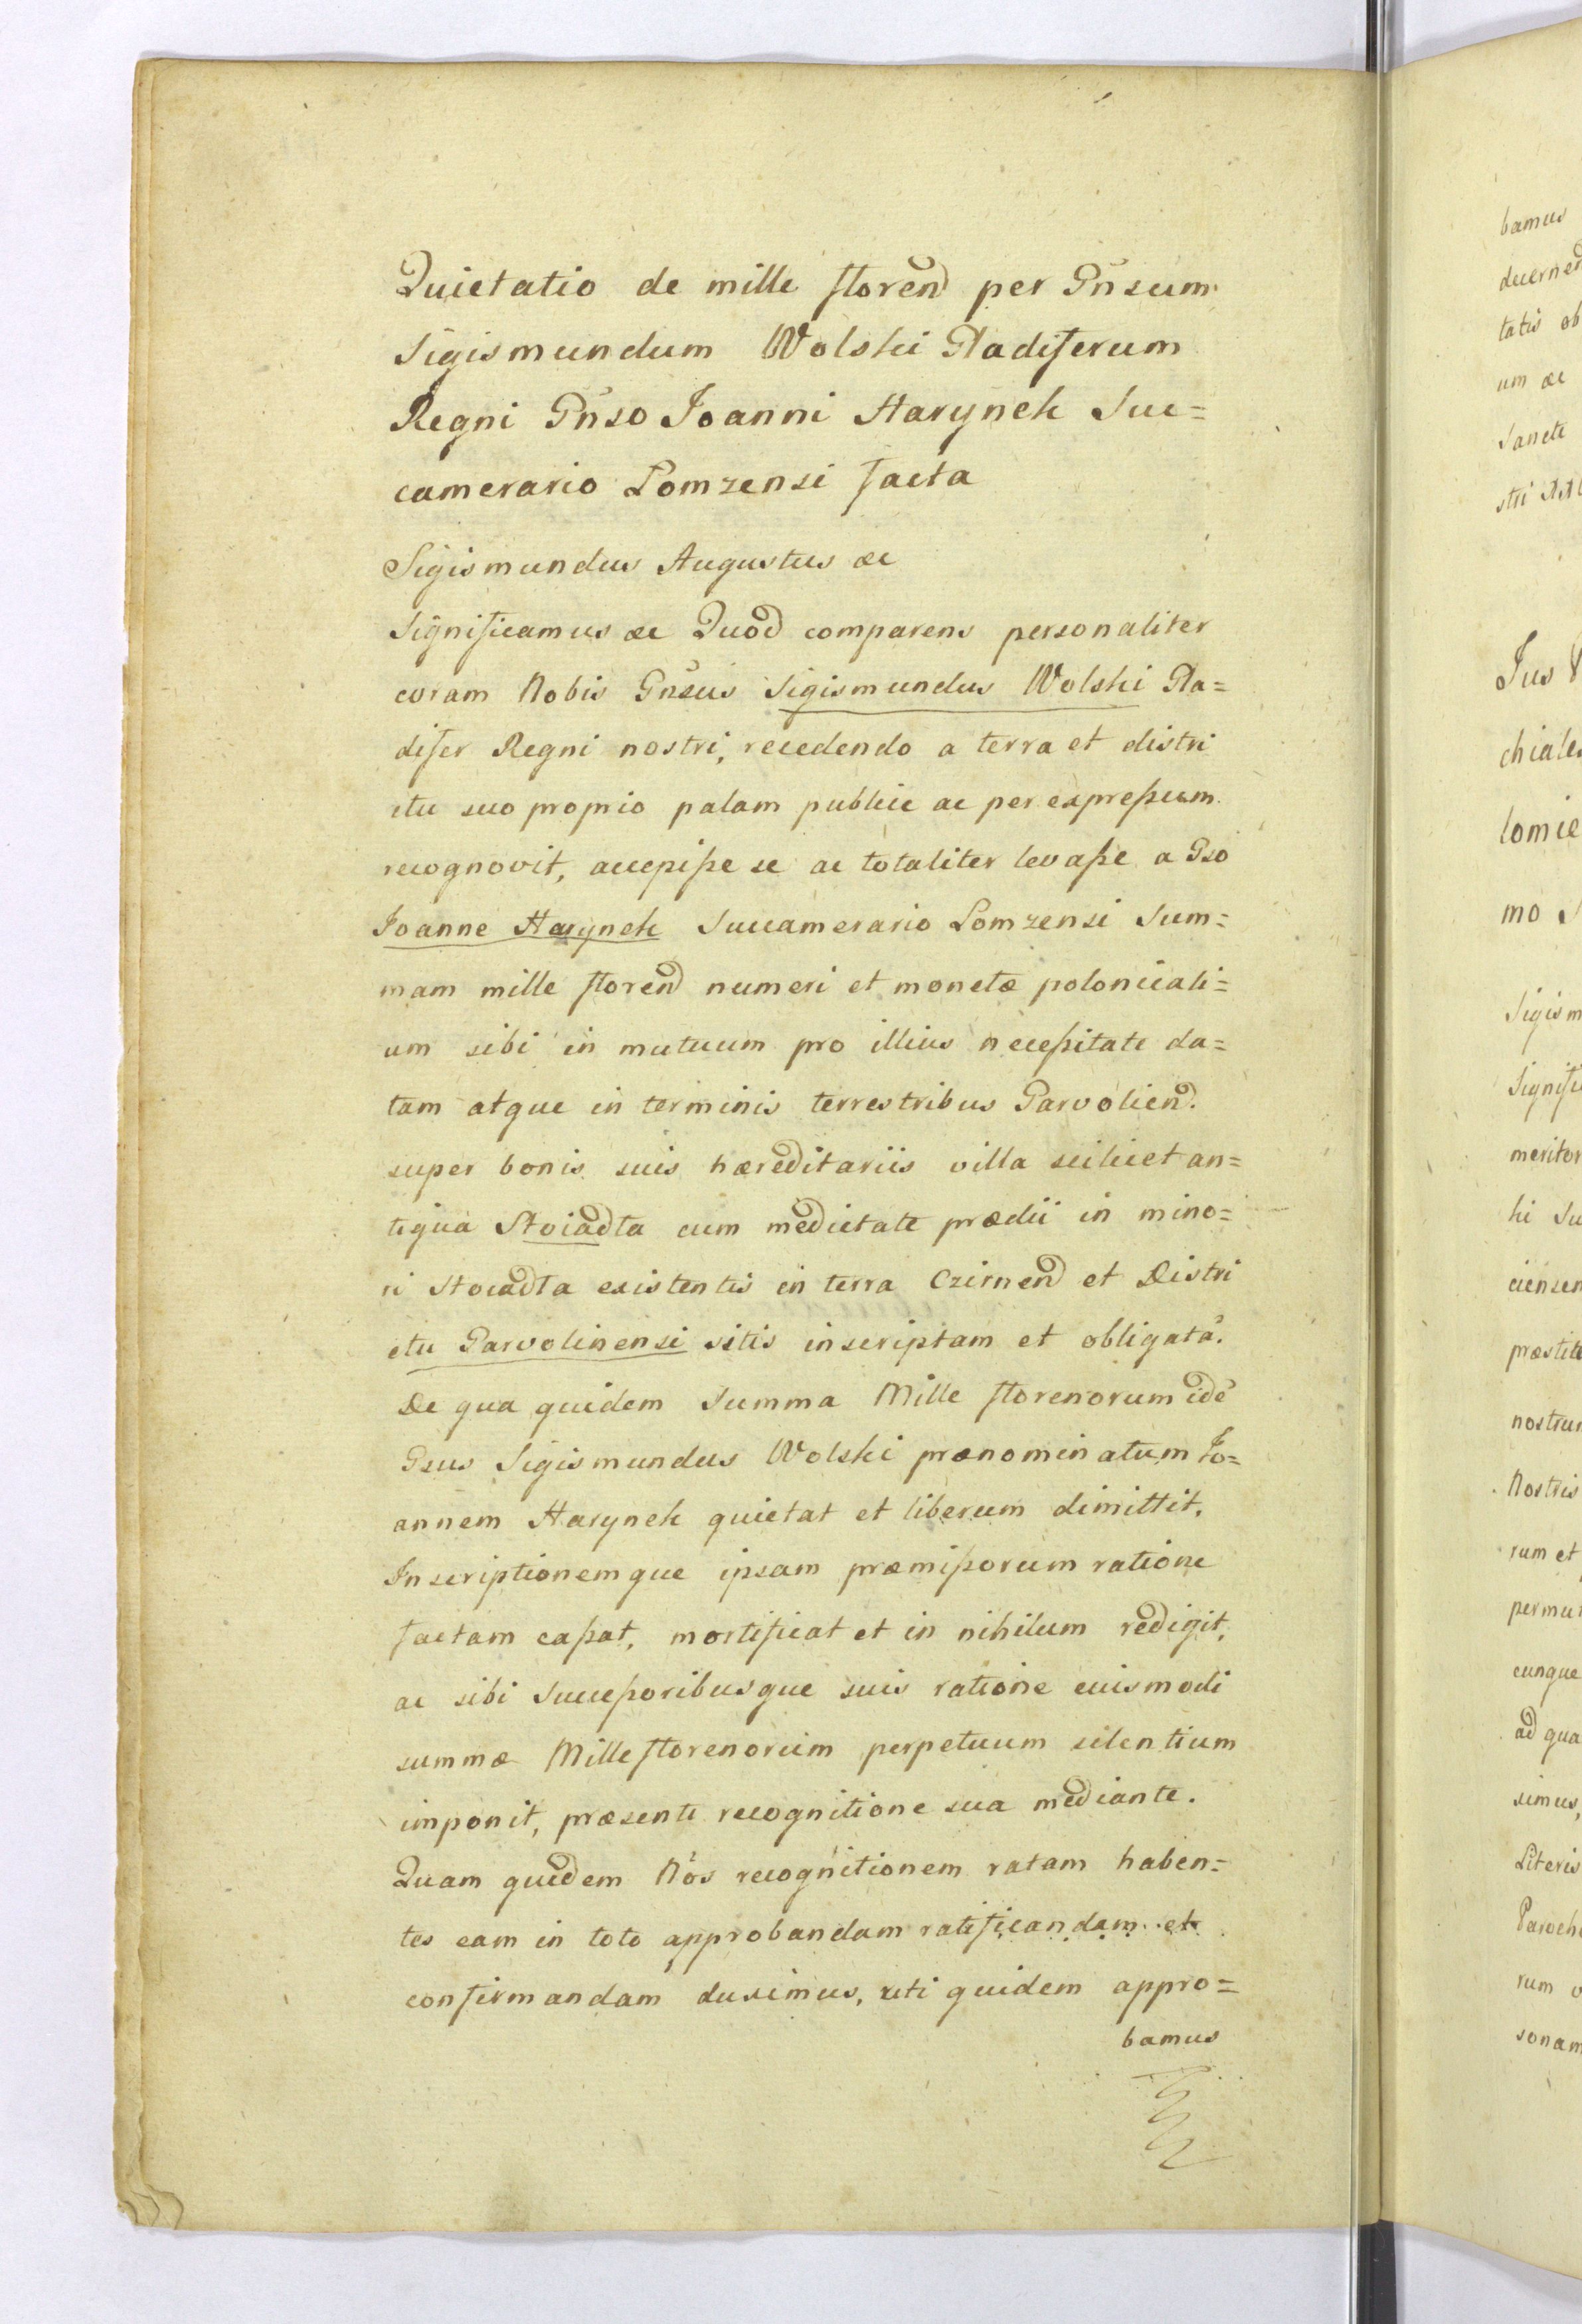 Quietatio de mille floren̄d per Gn̄sum
Sigismundum Wolski Gladiferum
Regni Gn̄so Joanni Harynek Suc=
camerario Lomzensi facta
Sigismundus Augustus &c
Significamus &c Quod comparens personaliter
coram Nobis Gn̄sus Sigismundus Wolski Gla=
difer Regni nostri, recedendo a terra et distri
ctu suo proprio palam publice ac per expreßum
recognovit, accepiße se ac totaliter levaße a Gso
Joanne Harynek Succamerario Lomzensi Sum=
mam mille floren̄d numeri et monetæ polonicali=
um sibi in mutuum pro illius neceßitate da=
tam atque in terminis terrestribus Garvolien̄d.
super bonis suis hæreditariis villa scilicet an=
tiqua Stoiadta cum medietate prædii in mino=
ri Stoiadta existentis in terra Czirnen̄d et Distri
ctu Garvolinensi sitis inscriptam et obligatā.
De qua quidem Summa Mille florenorum idē
Gsus Sigismundus Wolski prænominatum Jo=
annem Harynek quietat et liberum dimittit,
Inscriptionemque ipsam præmißorum ratione
factam caßat, mortificat et in nihilum redigit,
ac sibi Succeßoribusque suis ratione euismodi
summæ Mille florenorum perpetuum silentium
imponit, præsenti recognitione sua mediante.
Quam quidem Nos recognitionem ratam haben=
tes eam in toto approbandam ratificandam et
confirmandam duximus, uti quidem appro=
bamus
bamus
tatis ob
um &c
Sancte
Jus
chiales
lomie
mo
Sigism
Signifi
meritor
ki Su
ciensen
præstite
nostrum
Nostris
rum et
permut
cunque
ad qua
simus,
Literis
Paroch
rum
sonam